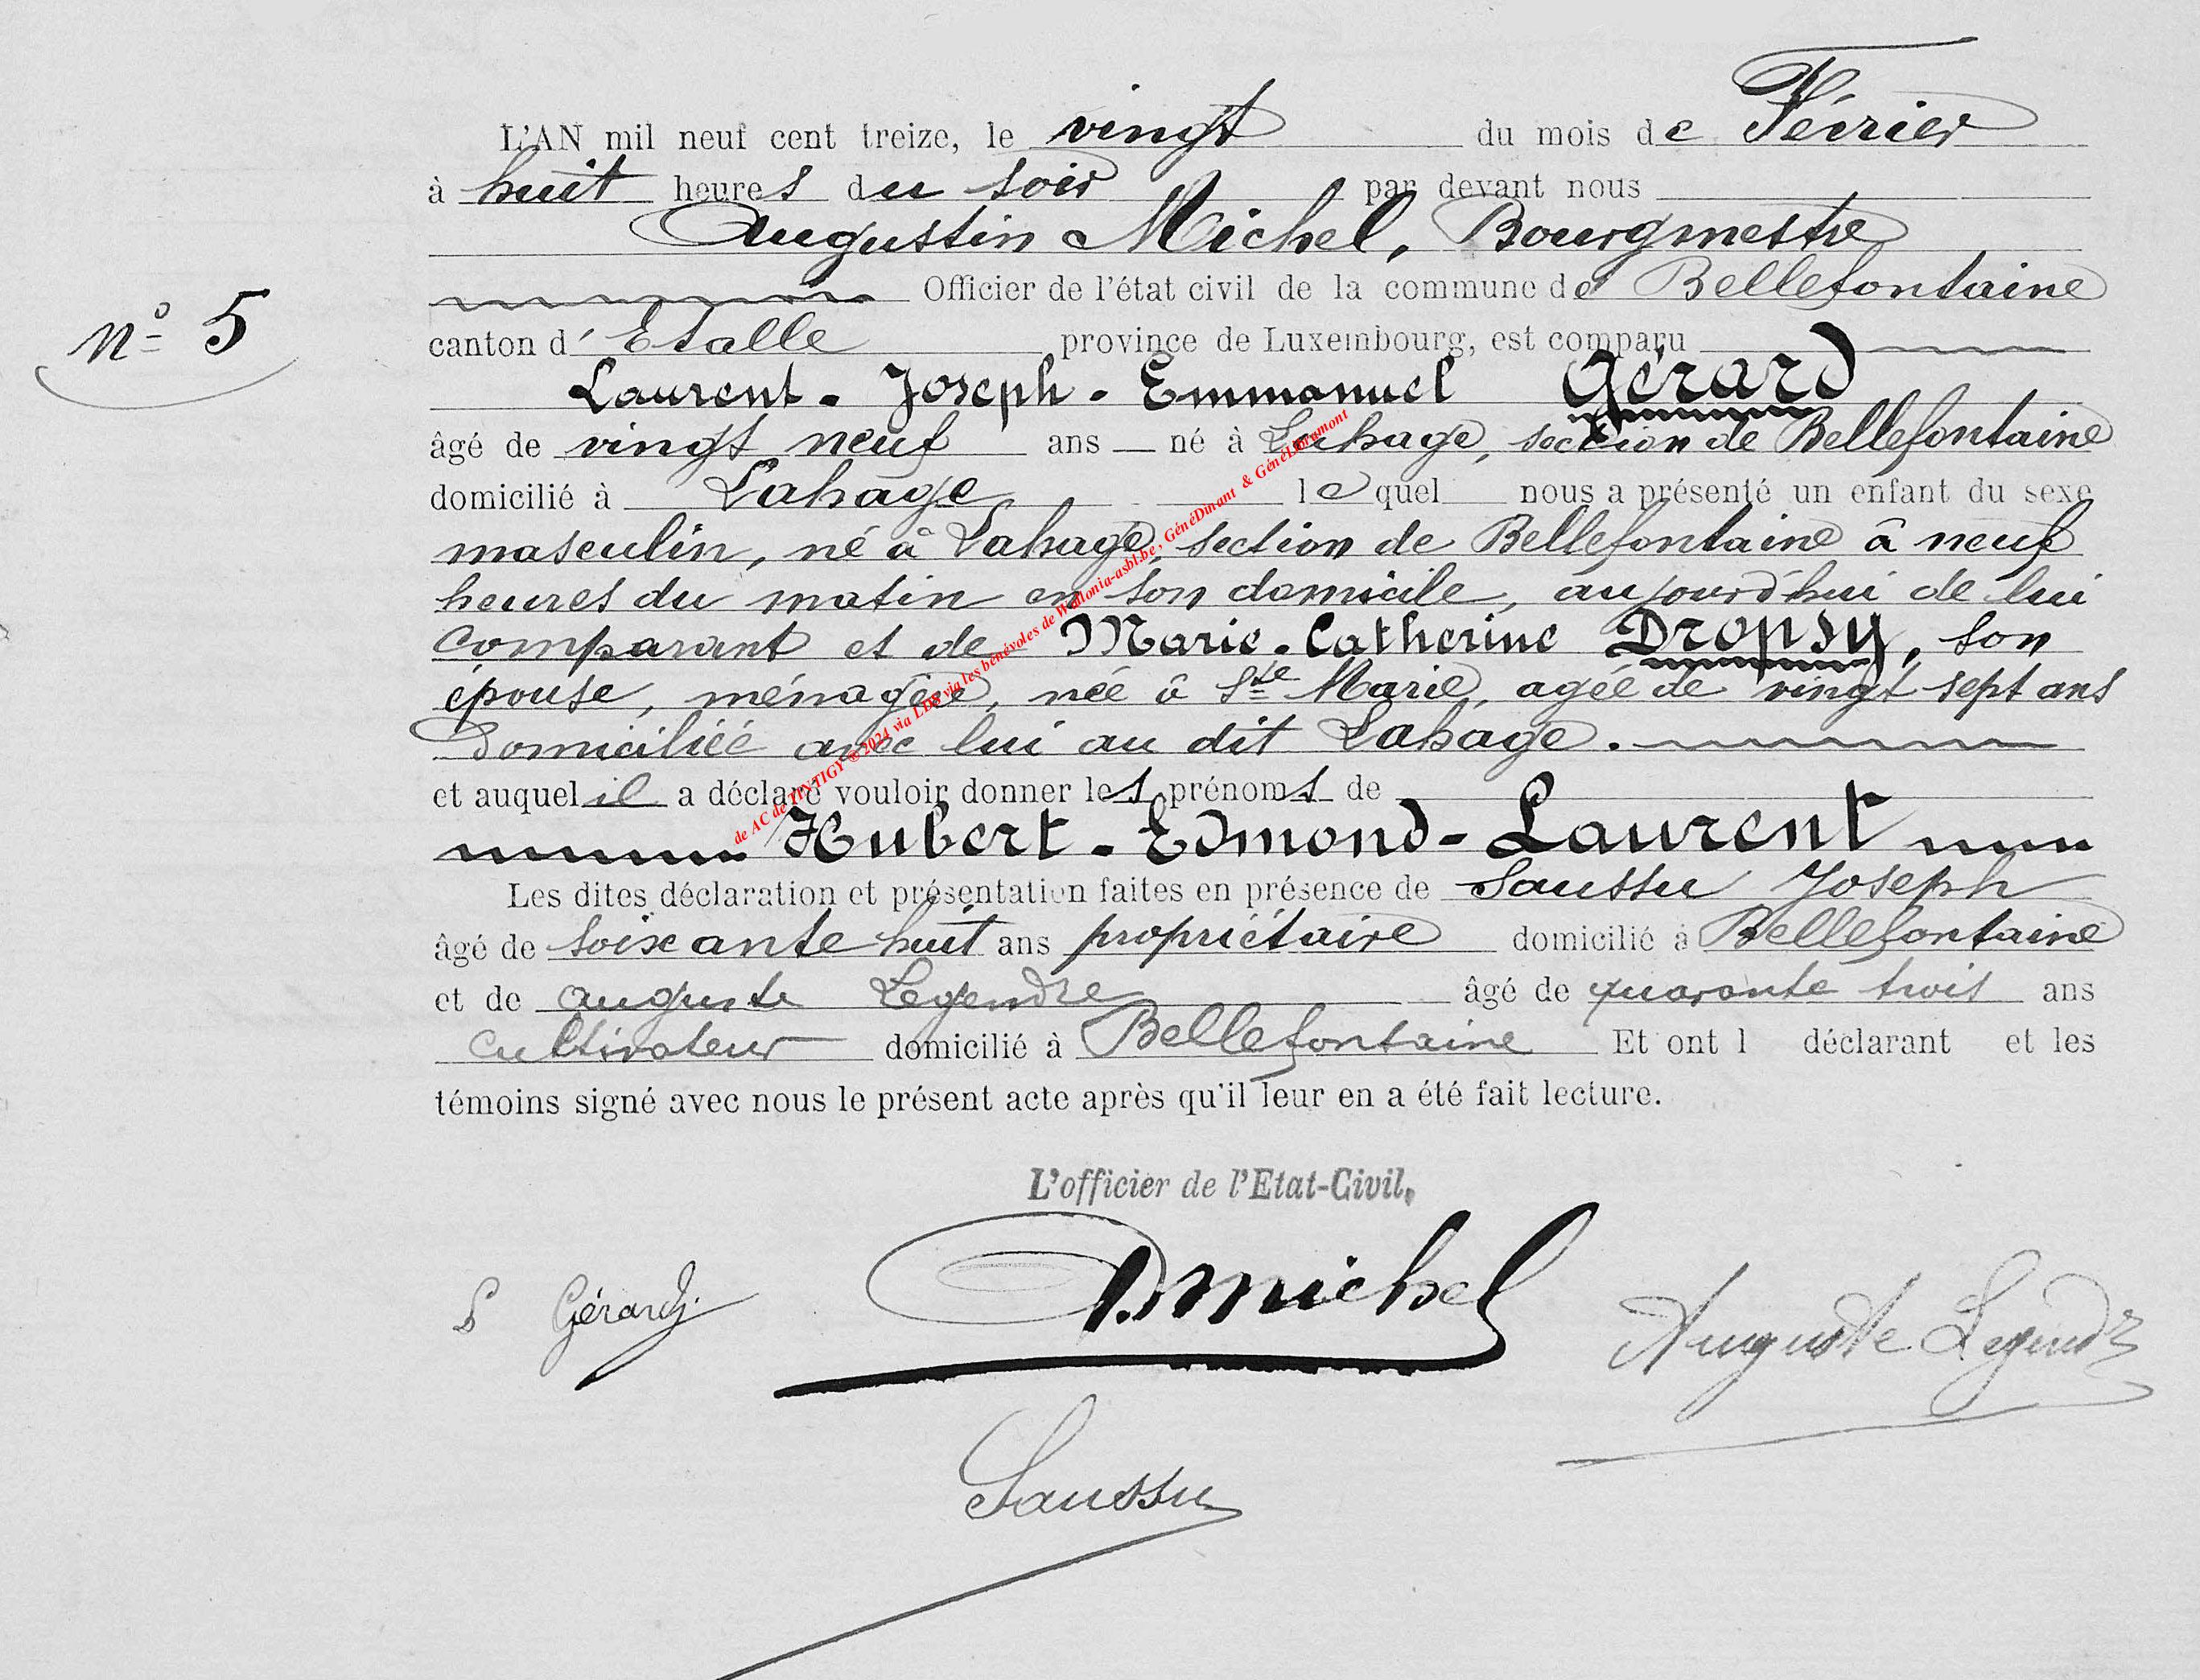 L'AN mil neuf cent treize, le vingt du mois de Février
à huit heures du soir par devant nous
Augustin Michel, Bourgmestre
Officier de l'état civil de la commune de Bellefontaine
n° 5
canton d'Etalle province de Luxembourg, est comparu
Laurent-Joseph-Emmanuel Gérard
âgé de vingt neuf ans né à Lahage, section de Bellefontaine
domicilié à Lahage lequel nous a présenté un enfant du sexe
masculin, né à Lahage, section de Bellefontaine à neuf
heures du matin en son domicile, aujourd'hui de lui
comparant et de Marie-Catherine Dropsy, son
épouse, ménagère, née à Ste Marie, agée de vingt sept ans
domiciliée avec lui au dit Lahage.
et auquel il a déclaré vouloir donner les prénoms de
Hubert-Edmond-Laurent
Les dites déclaration et présentation faites en présence de Saussu Joseph
âgé de soixante huit ans propriétaire domicilié à Bellefontaine
et de Auguste Legendre âgé de quarante trois ans
cultivateur domicilié à Bellefontaine Et ont l déclarant et les
témoins signé avec nous le présent acte après qu'il leur en a été fait lecture.
de AC de TINTIGY @ 2024 via LDS via les bénévoles de Wallonia-asbl.be, GénéDinant & GénéLibramont
L'officier de l'Etat-Civil,
L Gérard
AMichel
Auguste Legendre
Saussu